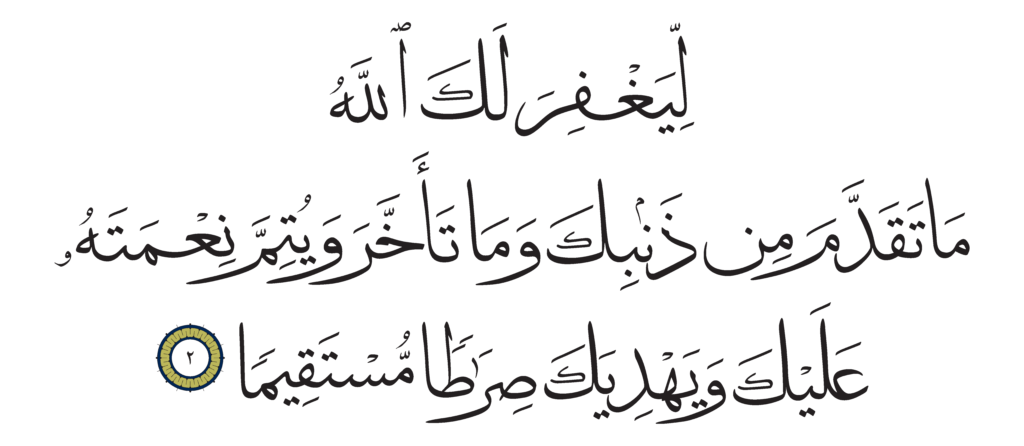 لِّيَغْفِرَ لَكَ ٱللَّهُ
مَا تَقَدَّمَ مِن ذَنۢبِكَ وَمَا تَأَخَّرَ وَيُتِمَّ نِعْمَتَهُۥ
عَلَيْكَ وَيَهْدِيَكَ صِرَٰطًا مُّسْتَقِيمًا ٢